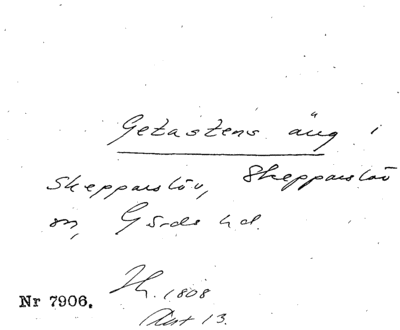 Getastens äng i
Skepparslöv, Skepparslöv
sn, Gärds hd.
Nr 7906. Th. 1808
Akt 13.